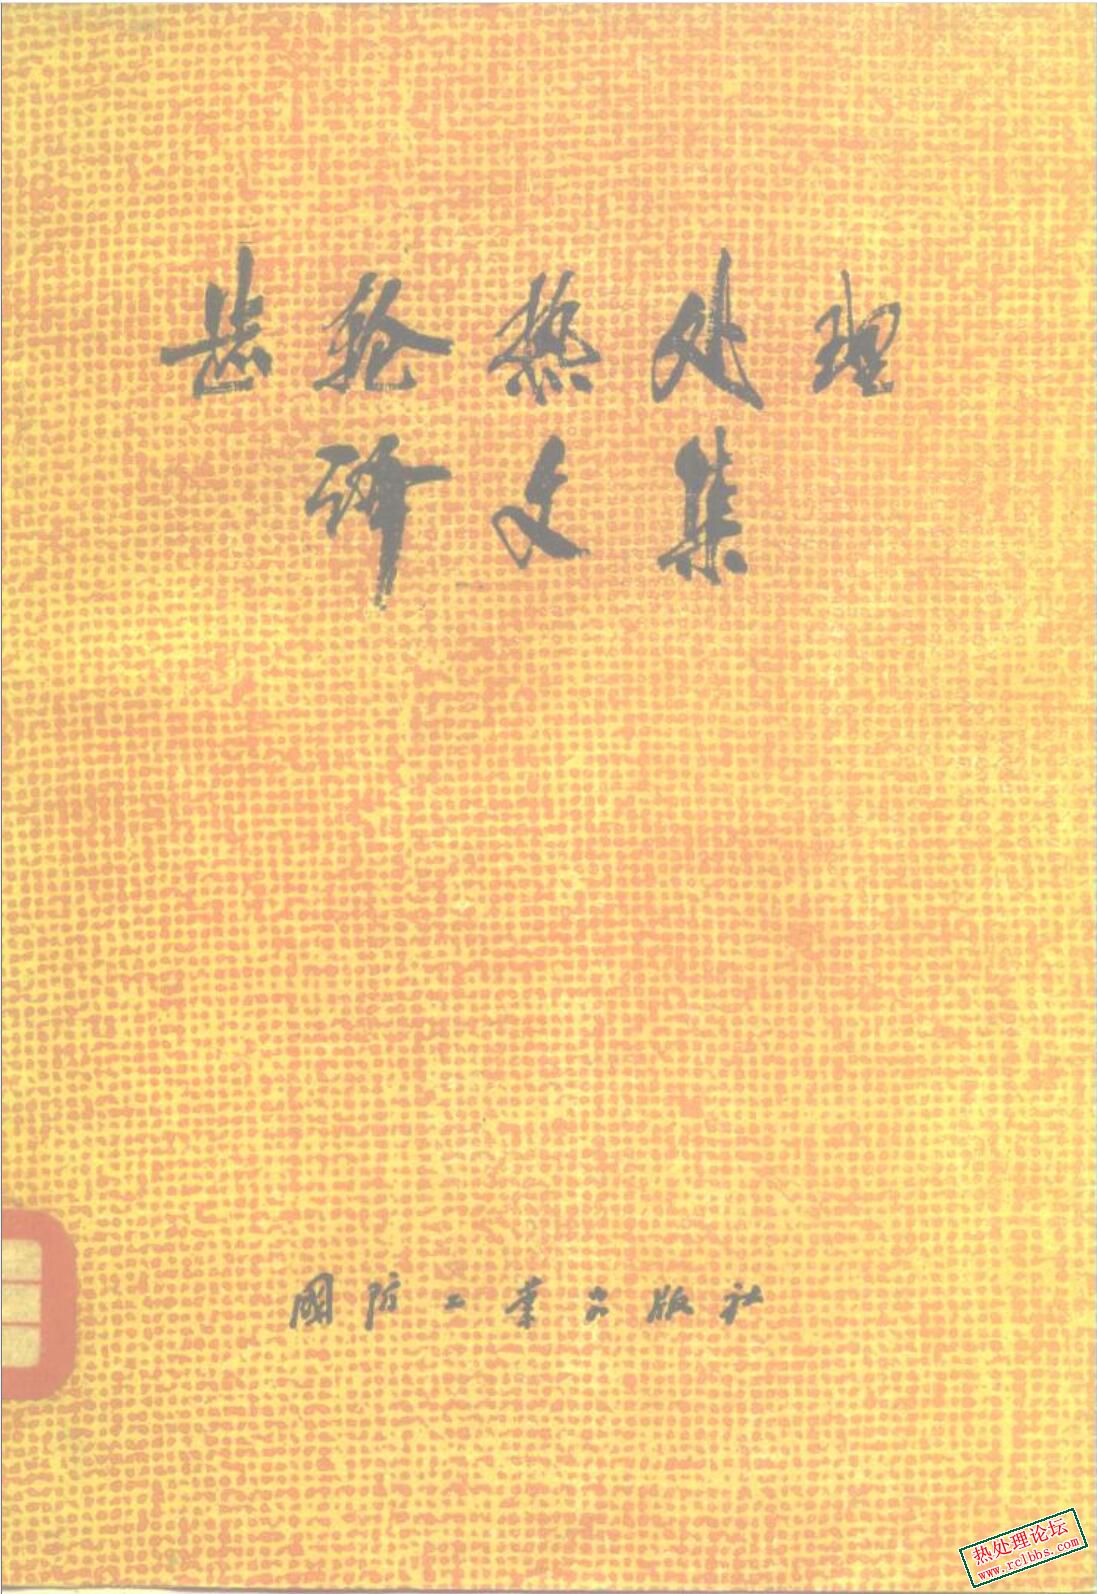 齿轮热处理
译文集
国防工业出版社
热处理论坛
www.rclbbs.com